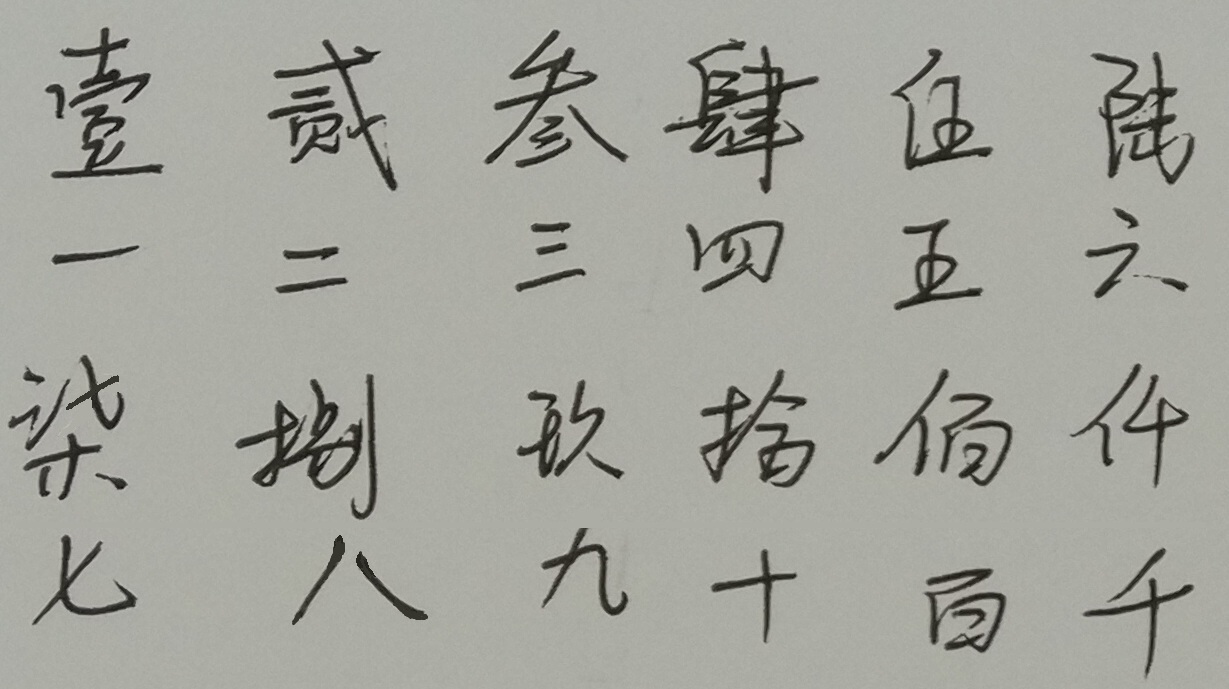 壹 贰 叁 肆 伍 陆
一 二 三 四 五 六
柒 捌 玖 拾 佰 仟
七 八 九 十 百 千